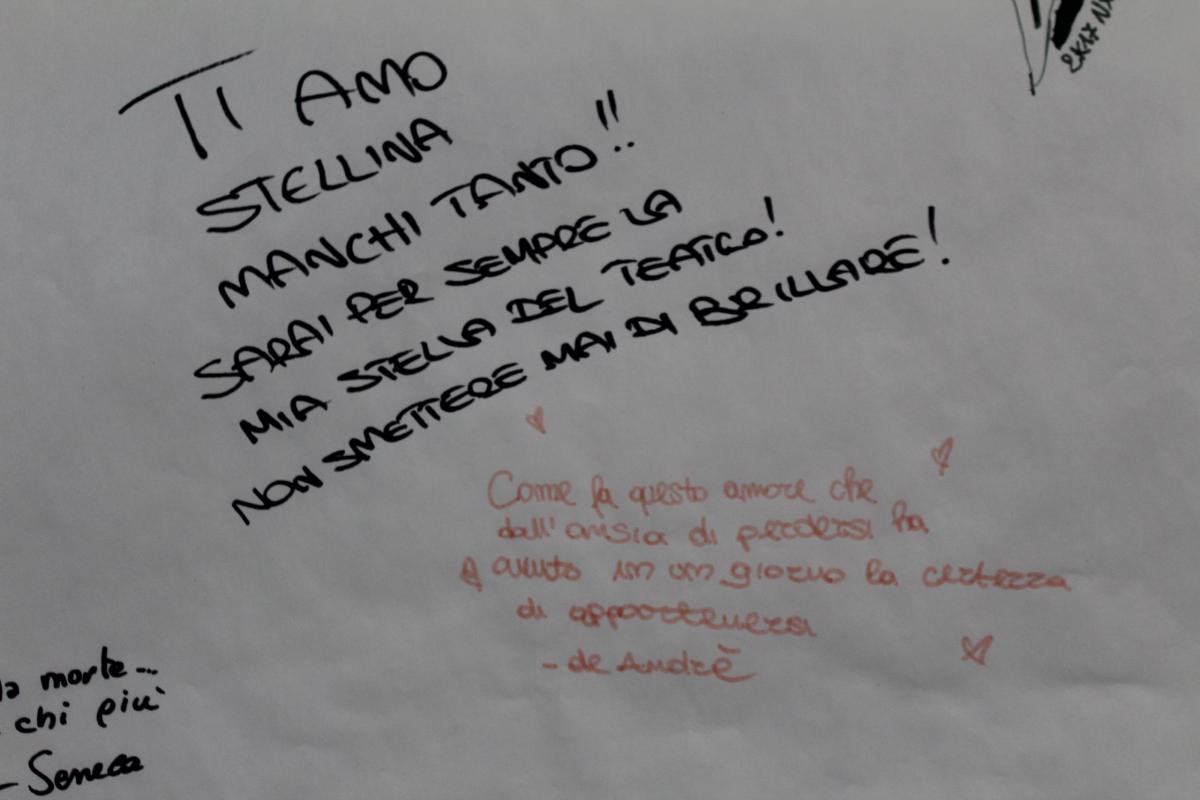 TI AMO
STELLINA
MANCHI TANTO!!
SARAI PER SEMPRE LA
MIA STELLA DEL TEATRO!
NON SMETTERE MAI DI BRILLARE!
Come fa questo amore che
dall'ansia di perdersi ha
avuto in un giorno la certezza
di appartenersi
- de Andrè
morte...
chi più
- Seneca